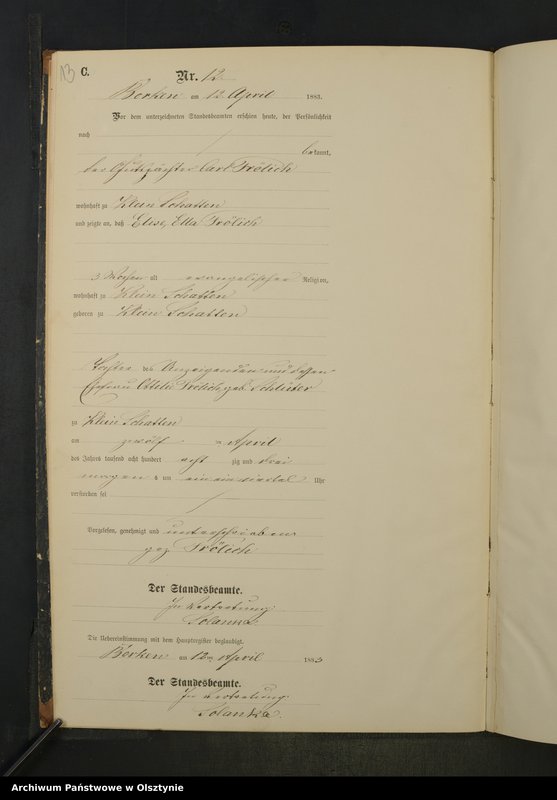 13 C.
Nr. 12
Borken am 12 April 1883.
Vor dem unterzeichneten Standesbeamten erschien heute, der Persönlichkeit
nach
bekannt,
der Gutspächter Carl Frölich
wohnhaft zu Klein Schatten
und zeigte an, daß Elise, Ella Frölich
3 Wochen alt evangelischer Religion,
wohnhaft zu Klein Schatten
geboren zu Klein Schatten
Tochter des Anzeigenden und dessen
Ehefrau Frölich geb. Schlüter
zu Klein Schatten
am zwölf ten April
des Jahres tausend acht hundert acht zig und drei
morgen s um ein ein viertel Uhr
verstorben sei
Vorgelesen, genehmigt und unterschrieben
gez Frölich
Der Standesbeamte.
In Vertretung:
Solanka
Die Uebereinstimmung mit dem Hauptregister beglaubigt.
Borken am 12ten April 1883
Der Standesbeamte.
In Vertretung:
Solanka.
Archiwum Państwowe w Olsztynie